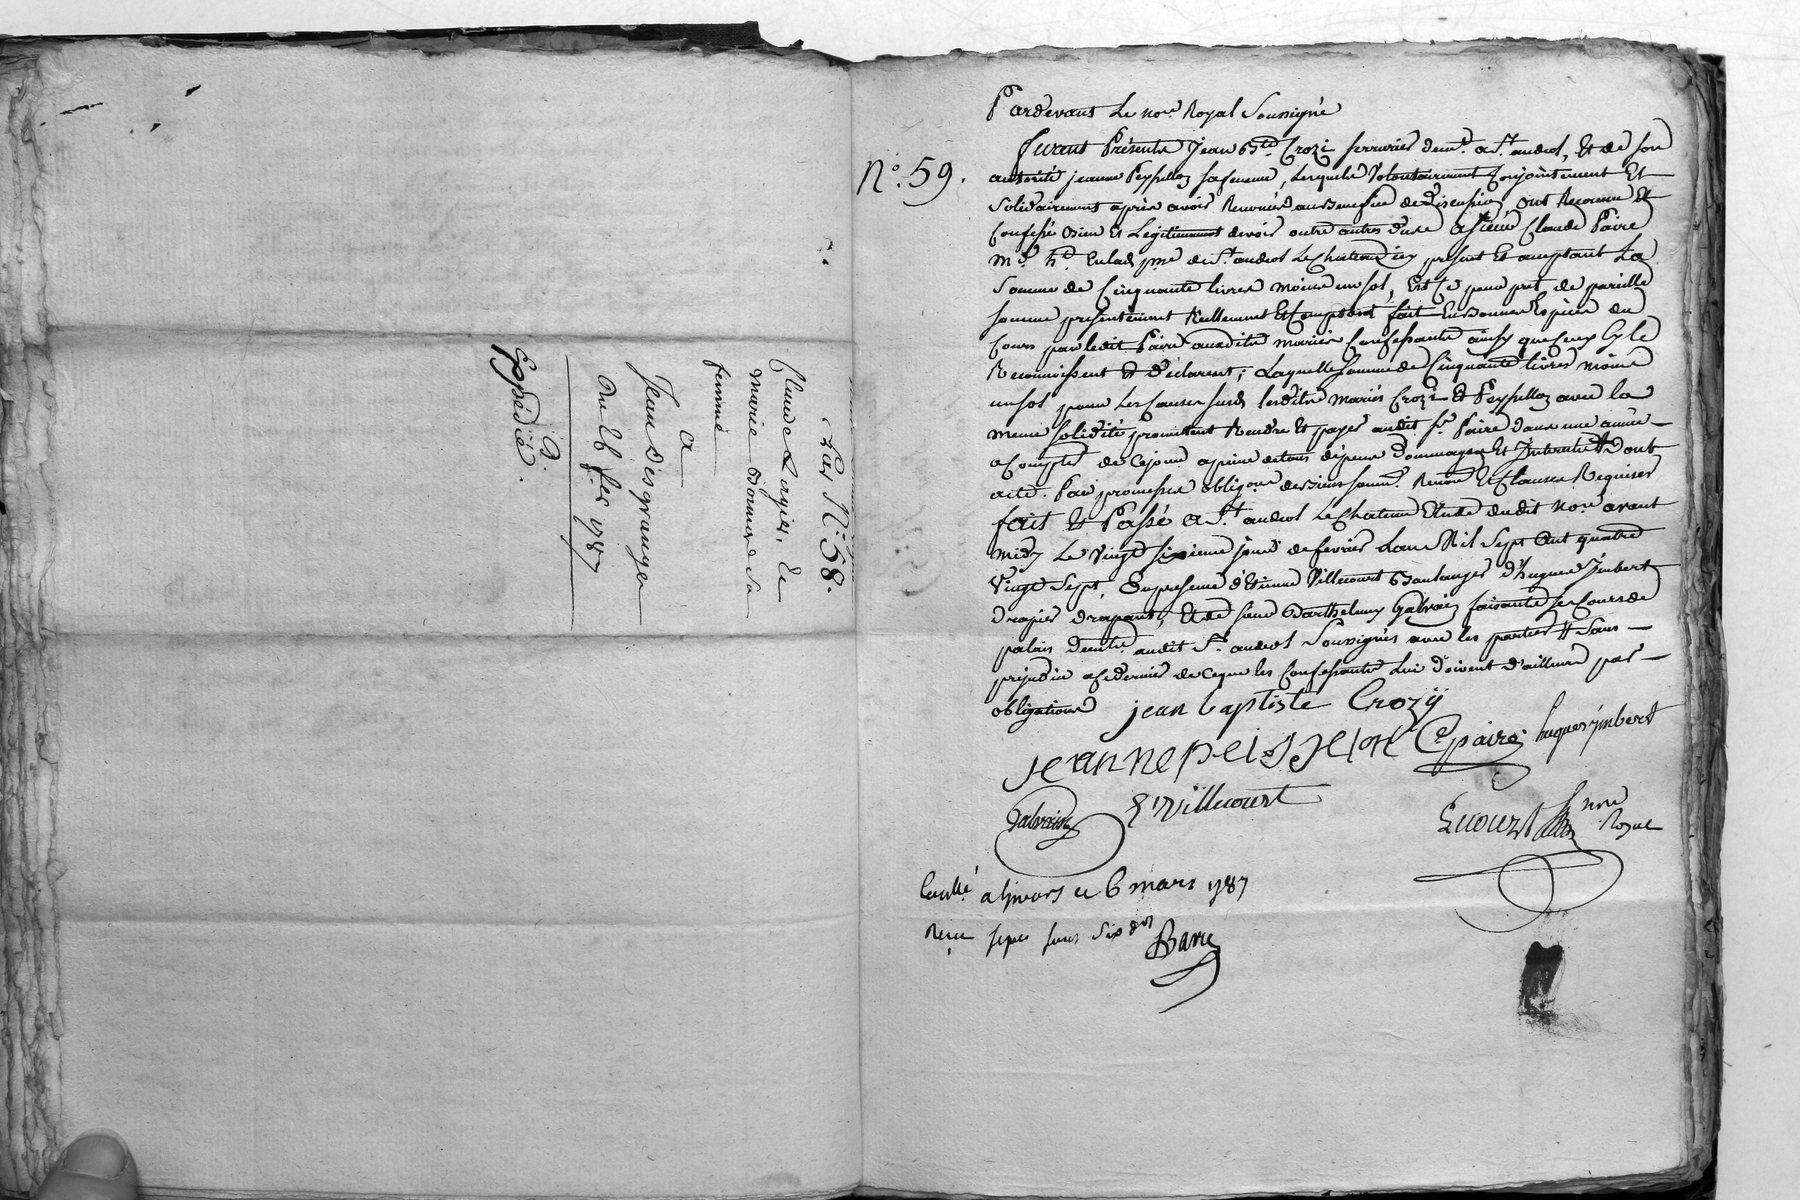 N.° 58.
Claude Lagier, &
marie Bonnard sa
femme
a
Jean desgranges
Du 26 f.er 1787
G.
Expédié.
N.° 59.
Pardevant Le no.re Royal Soussigné
furent Présents Jean B.te Crozi serrurier dem.t a S.t andeol, Et de son
autorité jeanne Peyssellon sa femme, Lesquels Volontairement Conjointement Et
Solidairement après avoir Renoncé au Benefice de discussion, ont Reconnu Et
Confessé Bien et Legitimement devoir outre autres dus a sieur Claude Paire
m.d h.t en lad. p.sse de S.t andeol Le Chateau icy présent Et acceptant La
Somme de Cinquante livres moins un sol, Est Ce pour pret de pareille
somme presentement Reellement Et Comptant fait En Bonnes Espèces du
Cours par ledit Paire auxdits mariés Confessants ainsy que Ceux Cy le
Reconnoissent Et déclarent; Laquelle somme de Cinquante livres moins
un sol pour Les Causes susd. lesdits mariés Crozi Et Peyssellon avec la
meme solidité promettent Rendre Et payer audit s.r Paire dans une année
a Compter de Ce jour a peine de tous dépens dommages Et Interets # Dont
acte. Par promesses oblig.ons des biens soum.s Renon.s Et Clauses Requises
fait Et Passé a S.t andeol Le Chateau Etude dudit no.re avant
midy Le Vingt sixieme jour de fevrier L'an Mil Sept Cent quatre
Vingt Sept, En presence d'Etienne Villecourt Boulanger d'hugues Jmbert
drapier drapant, Et de sieur Barthelemy Galvain faisant ses Cours de
palais dem.ts audit S.t andeol Soussignés avec les parties # Sans
prejudice a Ce dernier de Ce que les Confessants Lui doivent d'ailleurs par
obligations
jean baptiste Crozÿ
jeanne peisselon C. paire hugues jmbert
Galvain E. Villecourt
no.re
Royal
Con.llé a Givors le 6 mars 1787
Recu sept sous Six d.rs